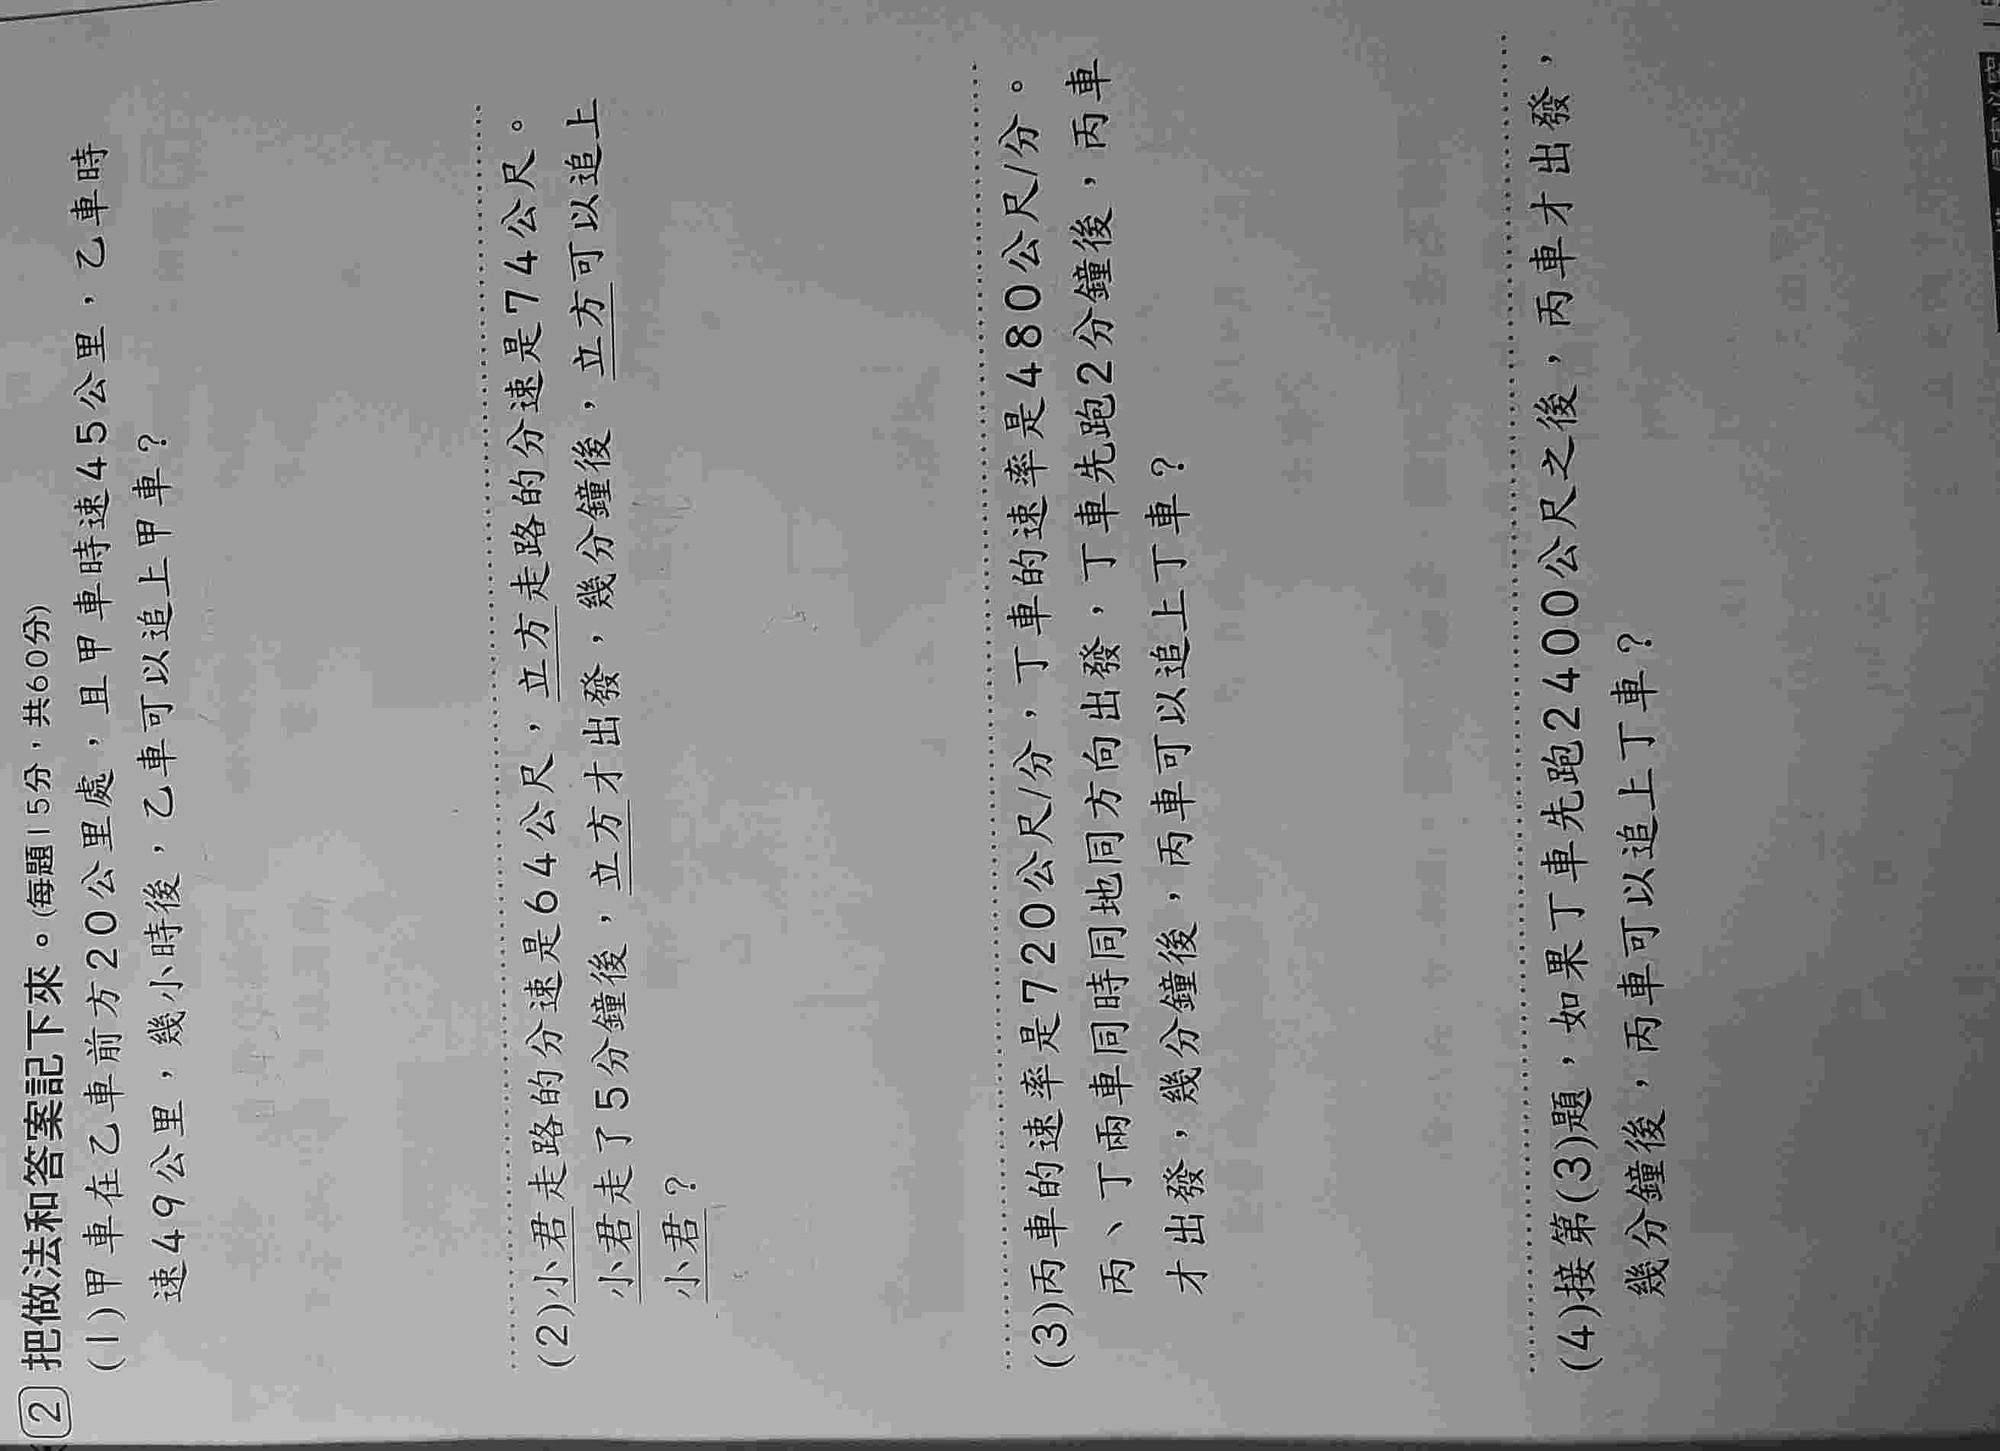 2 把做法和答案記下來。(每題15分，共60分)
(1)甲車在乙車前方20公里處，且甲車時速45公里，乙車時
速49公里，幾小時後，乙車可以追上甲車？
(2)小君走路的分速是64公尺，立方走路的分速是74公尺。
小君走了5分鐘後，立方才出發，幾分鐘後，立方可以追上
小君？
(3)丙車的速率是720公尺/分，丁車的速率是480公尺/分。
丙、丁兩車同時同地同方向出發，丁車先跑2分鐘後，丙車
才出發，幾分鐘後，丙車可以追上丁車？
(4)接第(3)題，如果丁車先跑2400公尺之後，丙車才出發，
幾分鐘後，丙車可以追上丁車？